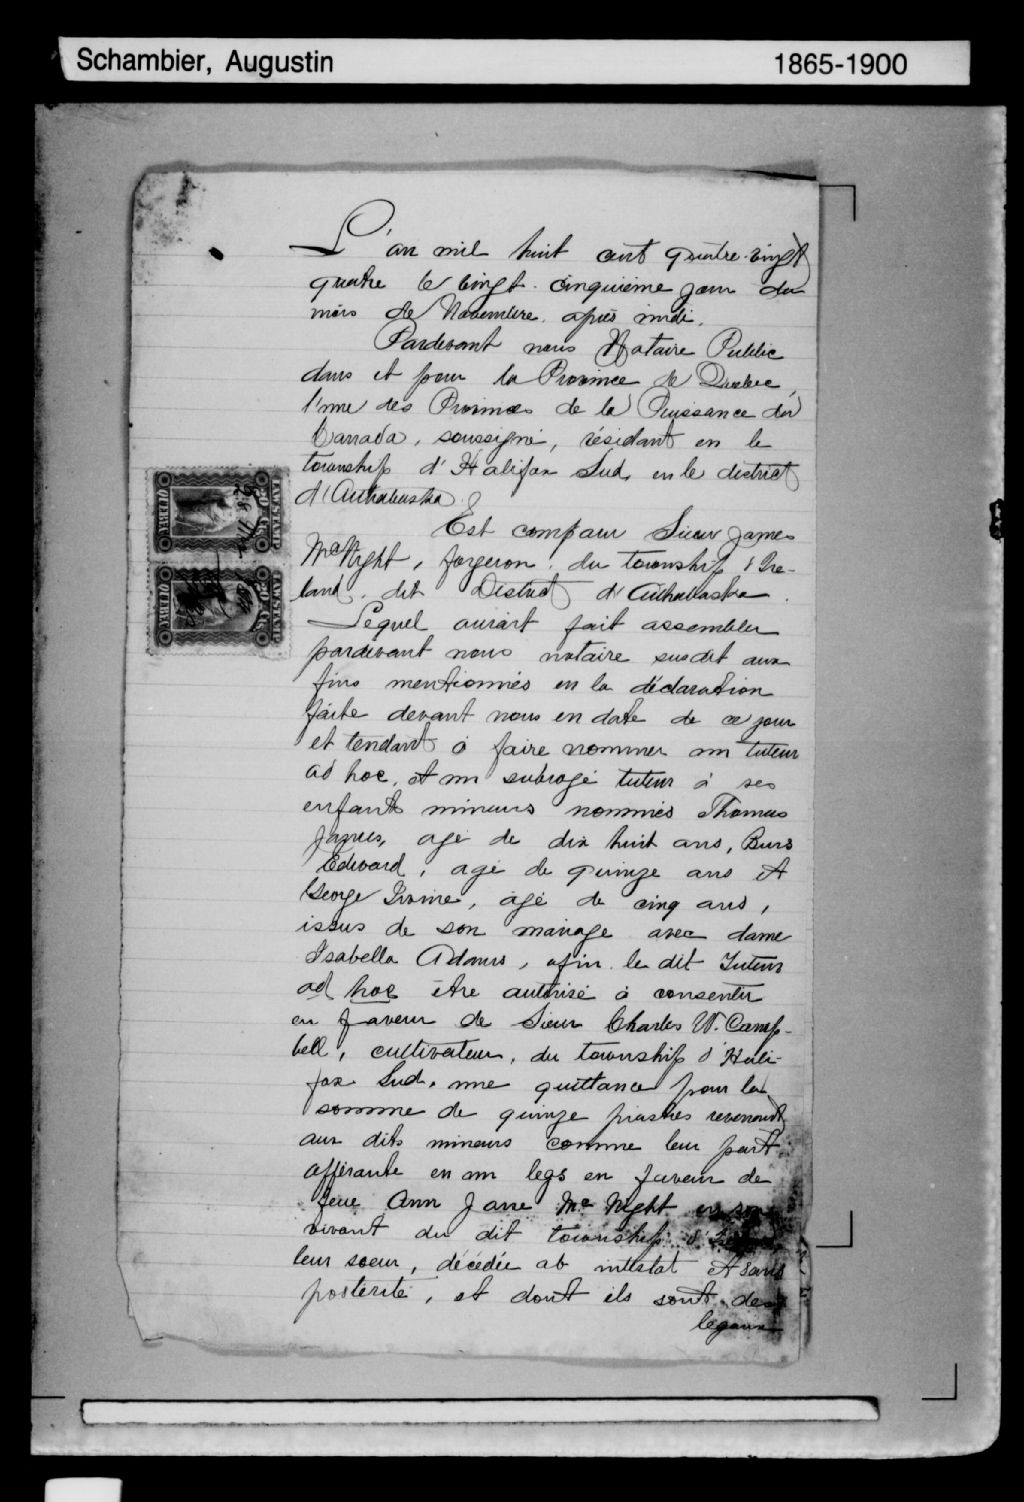 Schambier, Augustin 1865-1900
L'an mil huit cent quatre-vingt
quatre le vingt-cinquième jour du
mois de Novembre, après midi.
Pardevant nous Notaire Public
dans et pour la Province de Québec,
l'une des Provinces de la Puissance du
Canada, soussigné, résidant en le
township d'Halifax Sud, en le district
d'Arthabaska
Est comparu Sieur James
McNight, forgeron, du township d'Ire-
land, dit District d'Arthabaska.
Lequel aurait fait assembler
pardevant nous notaire susdit aux
fins mentionnés en la déclaration
faite devant nous en date de ce jour
et tendant à faire nommer un tuteur
ad hoc, et un subrogé tuteur à ses
enfants mineurs nommés Thomas
James, agé de dix huit ans,
Edward, agé de quinze ans et
George Irvine, âgé de cinq ans,
issus de son mariage avec dame
Isabella Adams, afin le dit Tuteur
ad hoc être autorisé à consentir
en faveur de Sieur Charles W. Camp-
bell, cultivateur, du township d'Hali-
fax Sud, une quittance pour la
somme de quinze piastres revenant
aux dits mineurs comme leur part
afférante en un legs en faveur de
feue Ann Jane McNight en son
vivant du dit township
leur soeur, décédée ab intestat et sans
postérité, et dont ils sont des
legaux
LAW STAMP
QUEBEC
LAW STAMP
QUEBEC